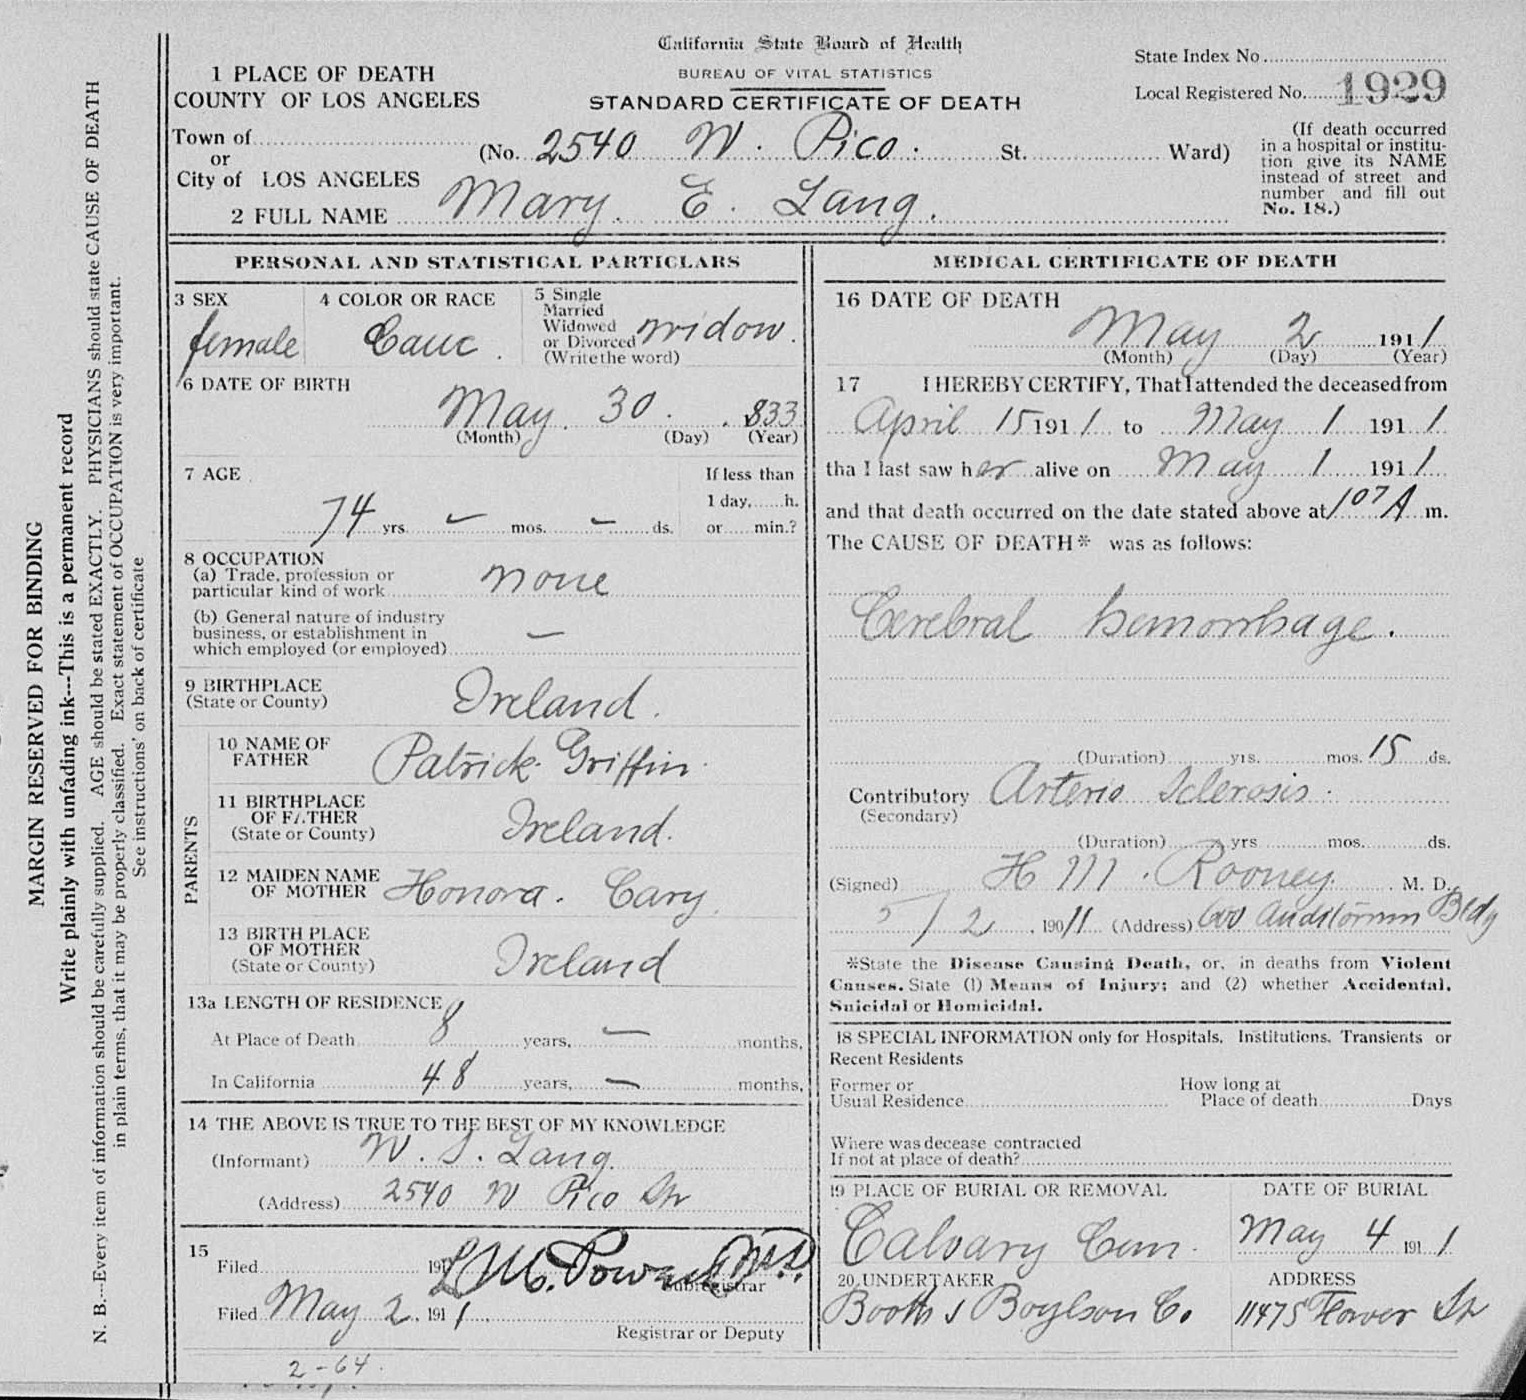 California State Board of Health
BUREAU OF VITAL STATISTICS
STANDARD CERTIFICATE OF DEATH
State Index No
Local Registered No. 1929
1 PLACE OF DEATH
COUNTY OF LOS ANGELES
Town of
or
City of LOS ANGELES
(No. 2540 W. Pico. St. Ward)
(If death occurred
in a hospital or institu-
tion give its NAME
instead of street and
number and fill out
No. 18.)
2 FULL NAME Mary. E. Lang.
PERSONAL AND STATISTICAL PARTICLARS
3 SEX
female
4 COLOR OR RACE
Cauc.
5 Single
Married
Widowed
or Divorced
(Write the word)
widow.
6 DATE OF BIRTH
May. 30. 833
(Month) (Day) (Year)
7 AGE
74 yrs. – mos. – ds.
If less than
1 day, h.
or min.?
8 OCCUPATION
(a) Trade, profession or
particular kind of work none
(b) General nature of industry
business, or establishment in
which employed (or employed) –
9 BIRTHPLACE
(State or County) Ireland.
PARENTS
10 NAME OF
FATHER Patrick Griffin
11 BIRTHPLACE
OF FATHER
(State or County) Ireland.
12 MAIDEN NAME
OF MOTHER Honora. Cary.
13 BIRTH PLACE
OF MOTHER
(State or County) Ireland
13a LENGTH OF RESIDENCE
At Place of Death 8 years, – months,
In California 48 years, – months,
14 THE ABOVE IS TRUE TO THE BEST OF MY KNOWLEDGE
(Informant) W. S. Lang.
(Address) 2540 W Pico St
15
Filed 191
L M. Powers M.D.
Subregistrar
Filed May 2. 1911.
Registrar or Deputy
2-64.
MEDICAL CERTIFICATE OF DEATH
16 DATE OF DEATH
May 2 1911
(Month) (Day) (Year)
17 I HEREBY CERTIFY, That I attended the deceased from
April 15 1911 to May 1 1911
tha I last saw her alive on May 1 1911
and that death occurred on the date stated above at 107 A m.
The CAUSE OF DEATH* was as follows:
Cerebral hemorrhage.
(Duration) yrs. mos. 15 ds.
Contributory Arterio Sclerosis.
(Secondary)
(Duration) yrs mos. ds.
(Signed) H M. Rooney. M. D.
5/2 . 190/11 (Address) 600 Auditorium Bldg
*State the Disease Causing Death, or, in deaths from Violent
Causes. State (1) Means of Injury; and (2) whether Accidental,
Suicidal or Homicidal.
18 SPECIAL INFORMATION only for Hospitals, Institutions, Transients or
Recent Residents
Former or
Usual Residence
How long at
Place of death Days
Where was decease contracted
If not at place of death?
19 PLACE OF BURIAL OR REMOVAL
Calvary Cem.
DATE OF BURIAL
May 4 1911
20 UNDERTAKER
Booth & Boylson Co.
ADDRESS
1147 S Flower St
MARGIN RESERVED FOR BINDING
Write plainly with unfading ink---This is a permanent record
N. B.---Every item of information should be carefully supplied. AGE should be stated EXACTLY. PHYSICIANS should state CAUSE OF DEATH
in plain terms, that it may be properly classified. Exact statement of OCCUPATION is very important.
See instructions' on back of certificate